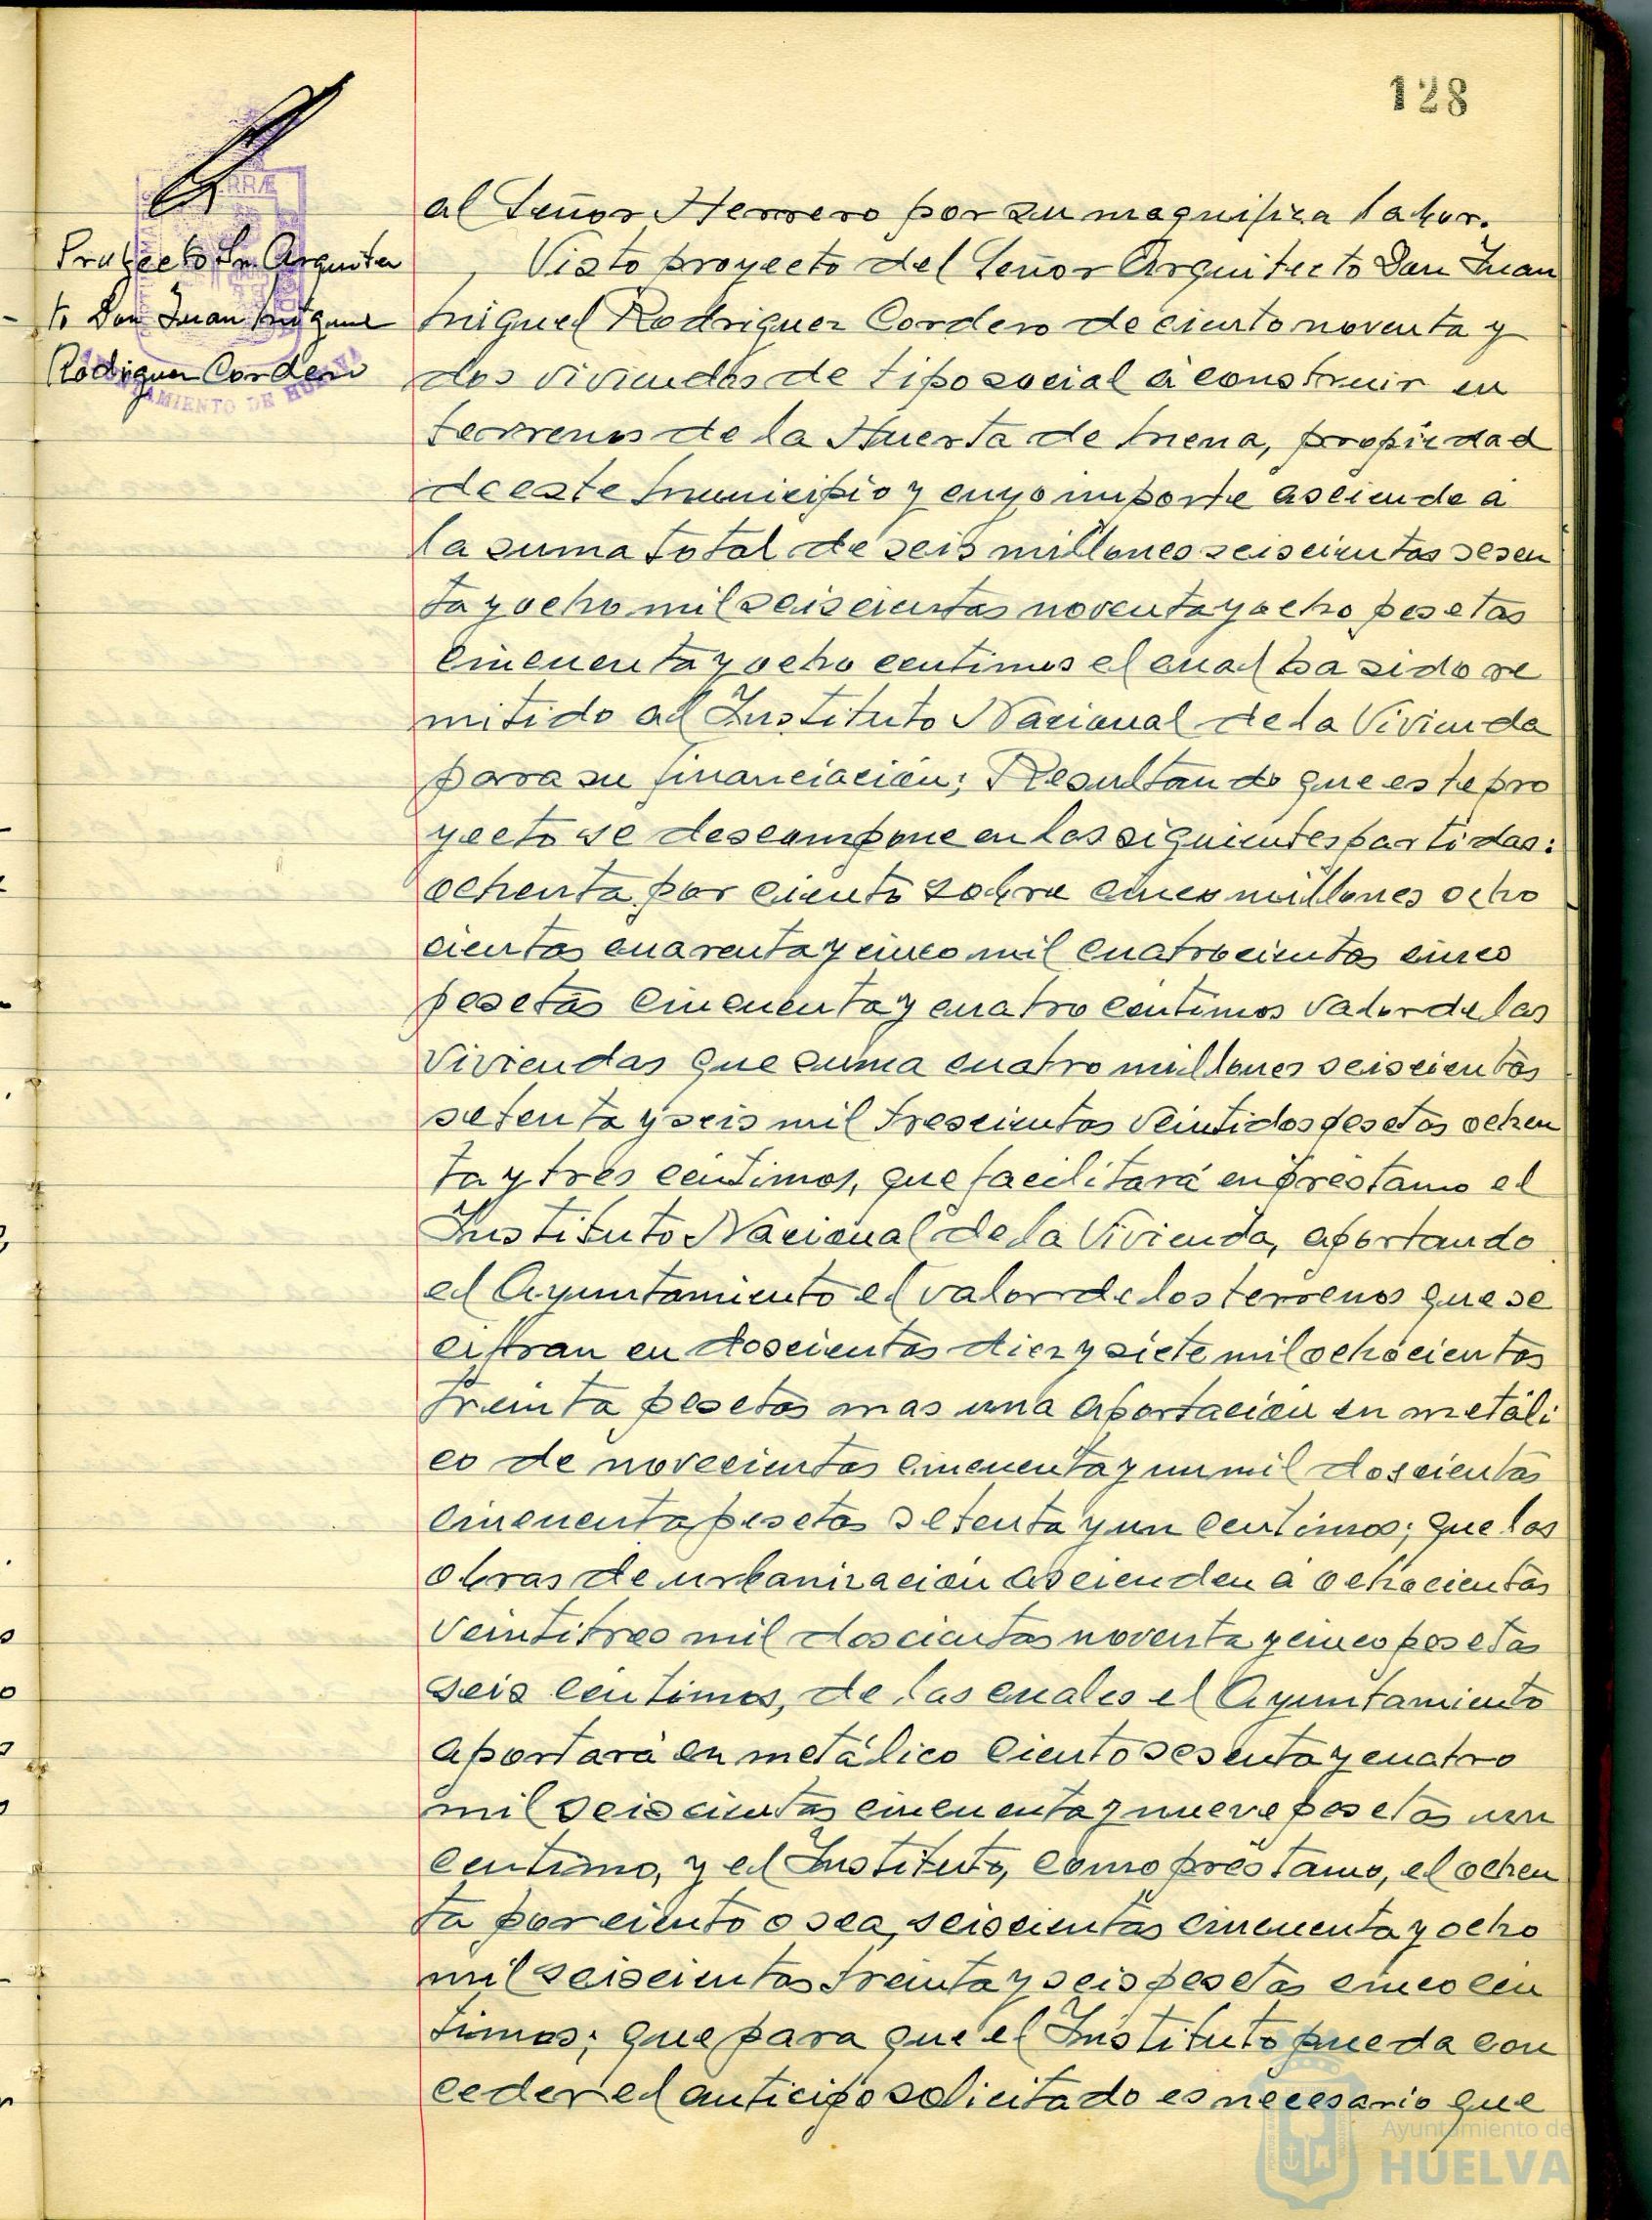 128
Proyecto Sr. Arquitec
to Don Juan Miguel
Rodriguez Cordero
al Señor Herrero por su magnifica labor.
Visto proyecto del Señor Arquitecto Don Juan
Miguel Rodriguez Cordero de ciento noventa y
dos viviendas de tipo social á construir en
terrenos de la Huerta de Mena, propiedad
de este Municipio y cuyo importe asciende á
la suma total de seis millones seiscientas sesen
ta y ocho mil seiscientas noventa y ocho pesetas
cincuenta y ocho centimos el cual ha sido re
mitido al Instituto Nacional de la Vivienda
para su financiación; Resultando que este pro
yecto se descompone en las siguientes partidas:
ochenta por ciento sobre cinco millones ocho
cientas cuarenta y cinco mil cuatrocientas cinco
pesetas cincuenta y cuatro centimos valor de las
viviendas que suma cuatro millones seiscientas
setenta y seis mil trescientas veintidos pesetas ochen
ta y tres centimos, que facilitará en préstamo el
Instituto Nacional de la Vivienda, aportando
el Ayuntamiento el valor de los terrenos que se
cifran en doscientas diez y siete mil ochocientas
treinta pesetas mas una aportación en metáli
co de novecientas cincuenta y un mil doscientas
cincuenta pesetas setenta y un centimos; que las
obras de urbanización ascienden á ochocientas
veintitres mil doscientas noventa y cinco pesetas
seis centimos, de las cuales el Ayuntamiento
aportará en metálico ciento sesenta y cuatro
mil seiscientas cincuenta y nueve pesetas un
centimo, y el Instituto, como préstamo, el ochen
ta por ciento o sea, seiscientas cincuenta y ocho
mil seiscientas treinta y seis pesetas cinco cen
timos; que para que el Instituto pueda con
ceder el anticipo solicitado es necesario que
Ayuntamiento de
HUELVA